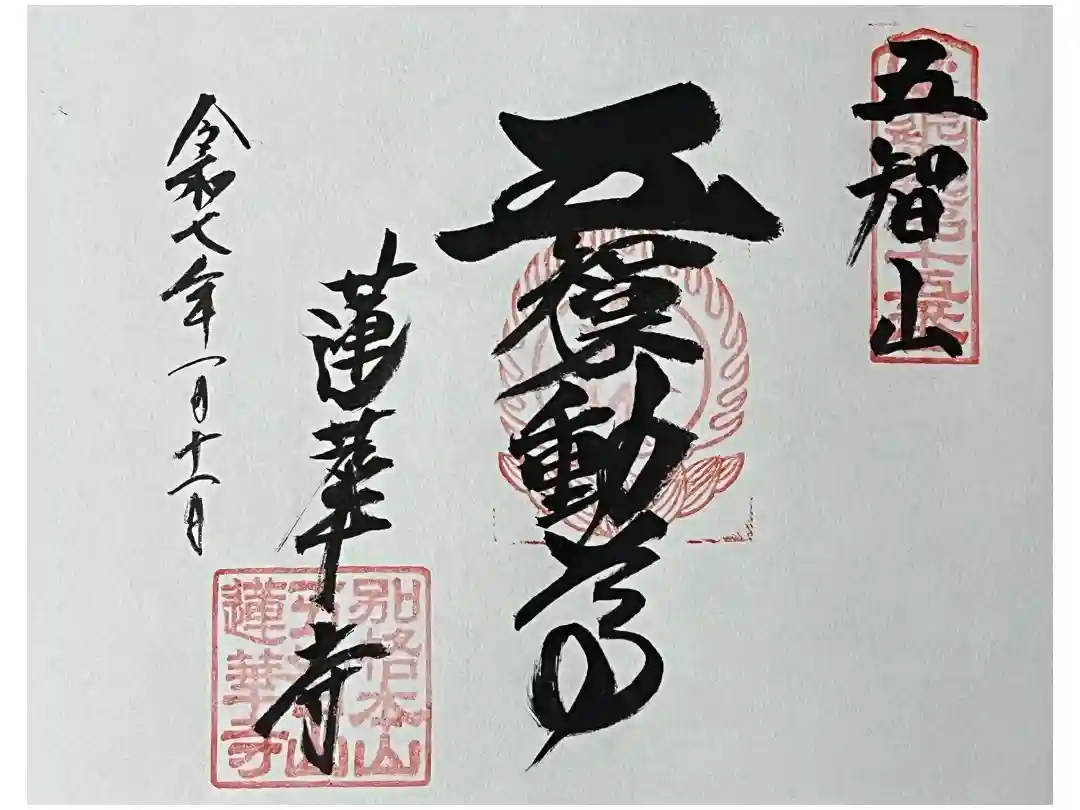 五智山
動尊
蓮華寺
令和七年一月十一日
別格本山
五智山
蓮華寺